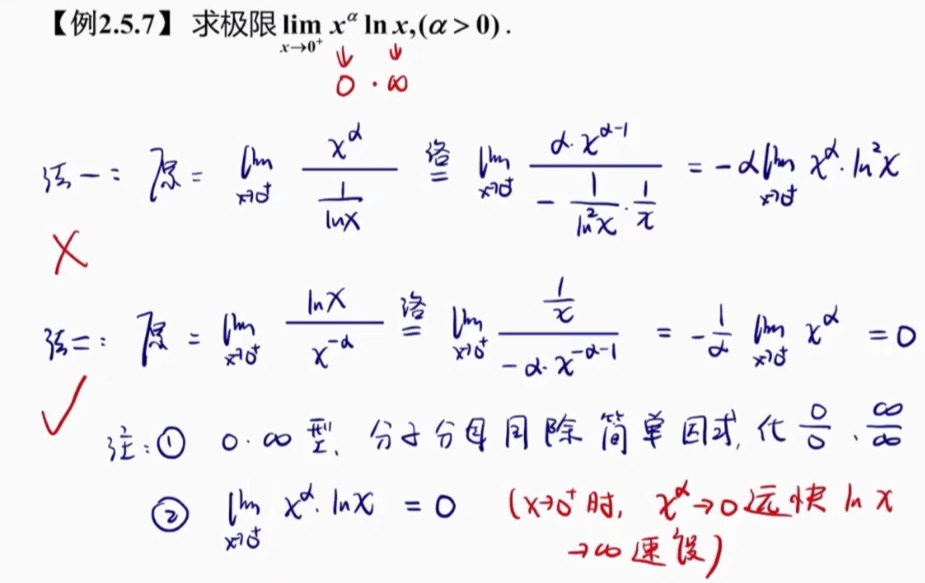 【例2.5.7】 求极限 lim x→0⁺ x^α ln x,(α > 0).
↓ ↓
0 · ∞
法一: 原 = lim x→0⁺ x^α / (1/lnx) 洛= lim x→0⁺ α·x^(α-1) / (-1/ln²x · 1/x) = -α lim x→0⁺ x^α · ln²x
✗
法二: 原 = lim x→0⁺ lnx / x^(-α) 洛= lim x→0⁺ (1/x) / (-α·x^(-α-1)) = -1/α lim x→0⁺ x^α = 0
✓
注:① 0·∞ 型, 分子分母同除简单因式, 化 0/0、∞/∞
② lim x→0⁺ x^α · lnx = 0 (x→0⁺时, x^α→0远快 ln x
→∞速度)